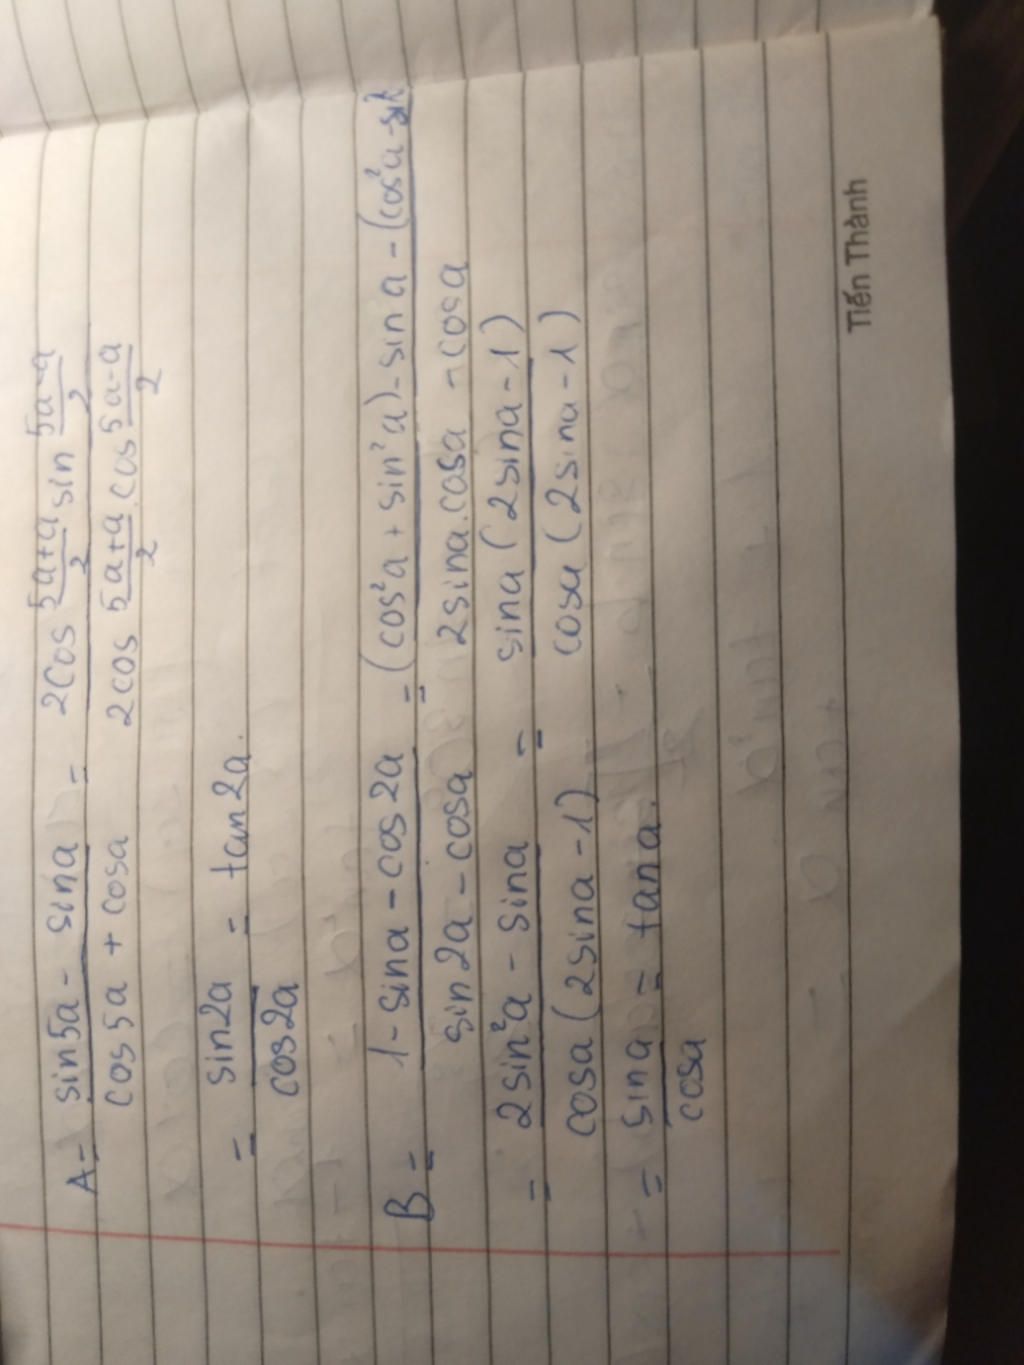 A = sin5a - sina / cos5a + cosa = 2cos 5a+a/2 sin 5a-a/2 / 2cos 5a+a/2 . cos 5a-a/2
= sin2a / cos2a = tan2a.
B = 1 - sina - cos2a / sin2a - cosa = (cos²a + sin²a) - sina - (cos²a - / 2sina.cosa - cosa
= 2sin²a - sina / cosa(2sina - 1) = sina(2sina - 1) / cosa(2sina - 1)
= sina / cosa = tana.
Tiến Thành